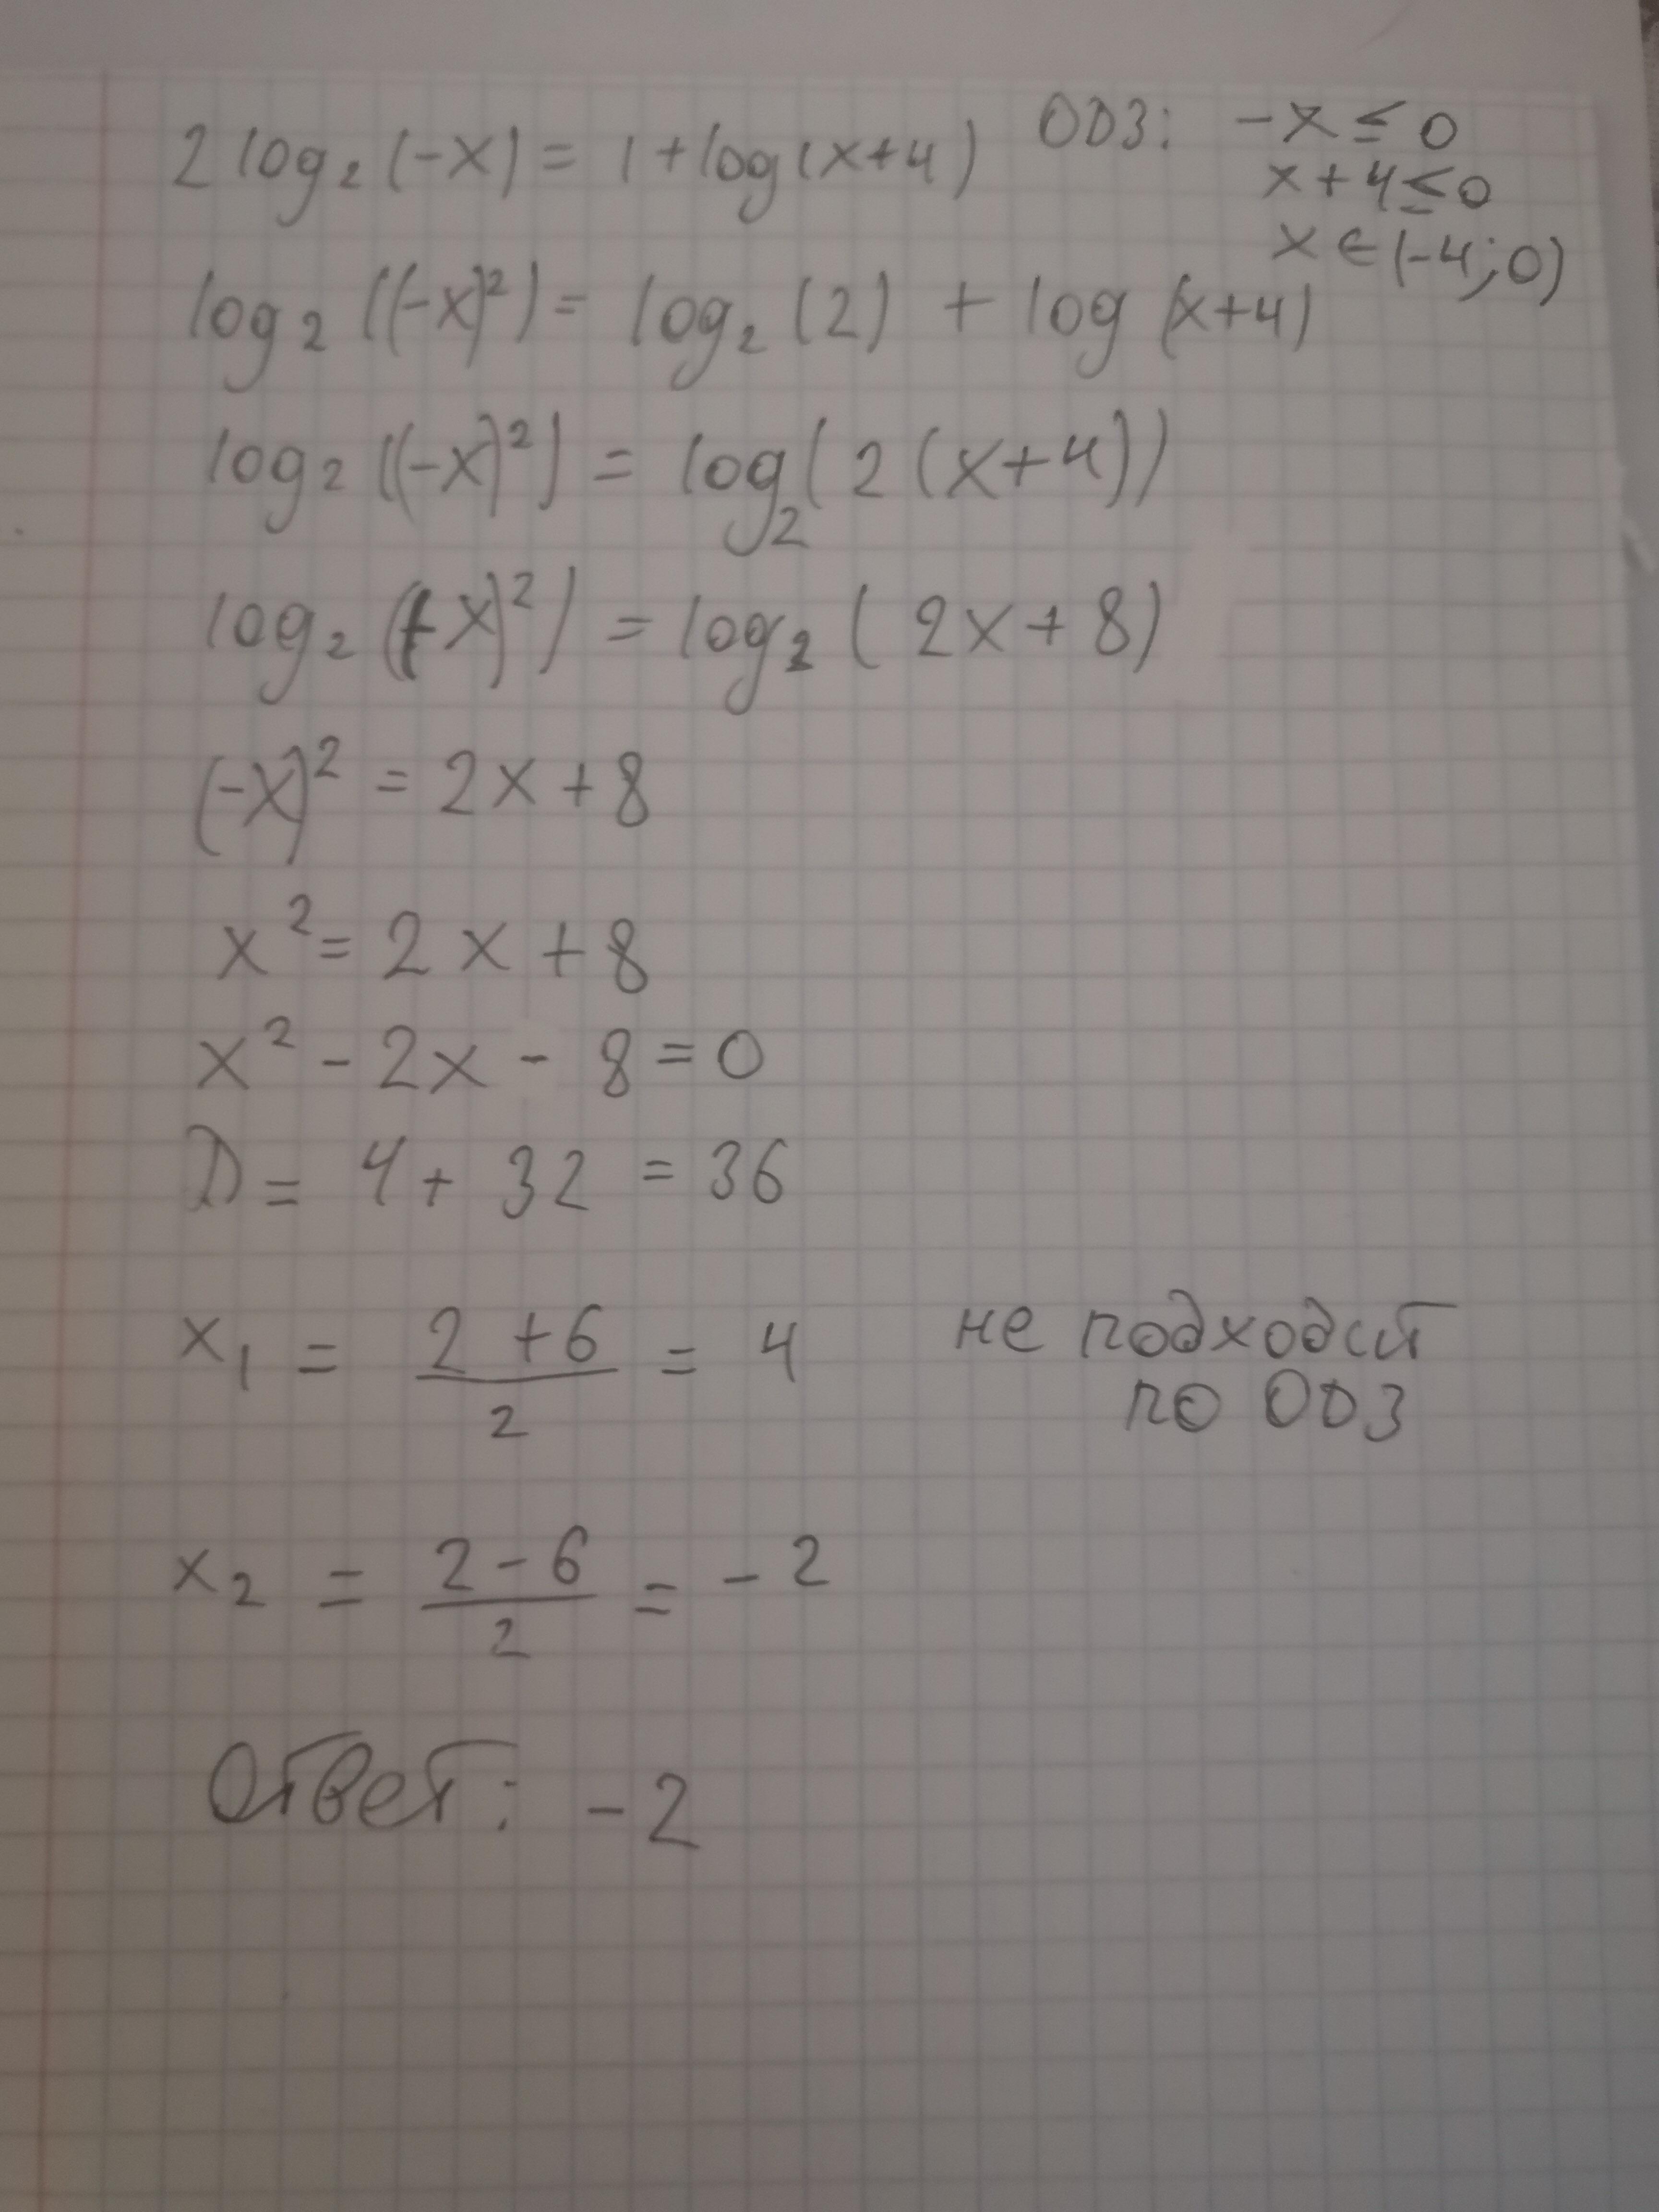 2 log₂ (-x) = 1 + log(x+4) ОДЗ: -x ≤ 0
x + 4 ≤ 0
x ∈ (-4; 0)
log₂ ((-x)²) = log₂ (2) + log (x+4)
log₂ ((-x)²) = log₂ (2 (x+4))
log₂ ((-x)²) = log₂ (2x + 8)
(-x)² = 2x + 8
x² = 2x + 8
x² - 2x - 8 = 0
D = 4 + 32 = 36
x₁ = (2 + 6)/2 = 4 не подходит
по ОДЗ
x₂ = (2 - 6)/2 = -2
Ответ: -2